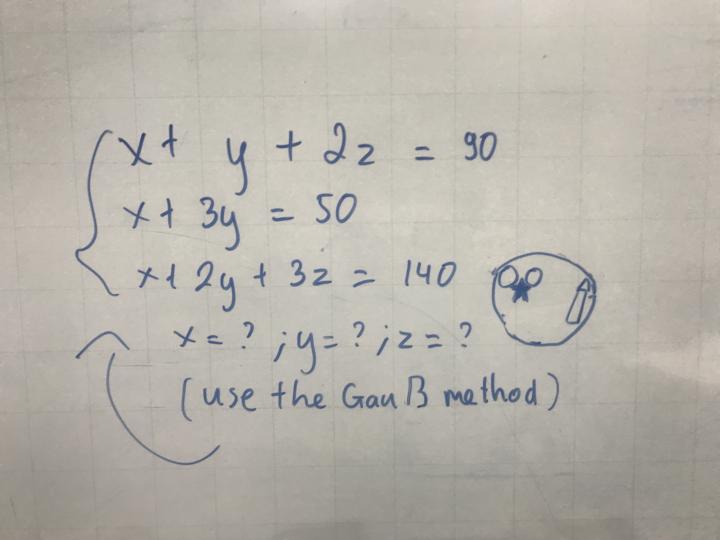 x + y + 2z = 90
x + 3y = 50
x + 2y + 3z = 140
x = ? ; y = ? ; z = ?
(use the Gauß method)